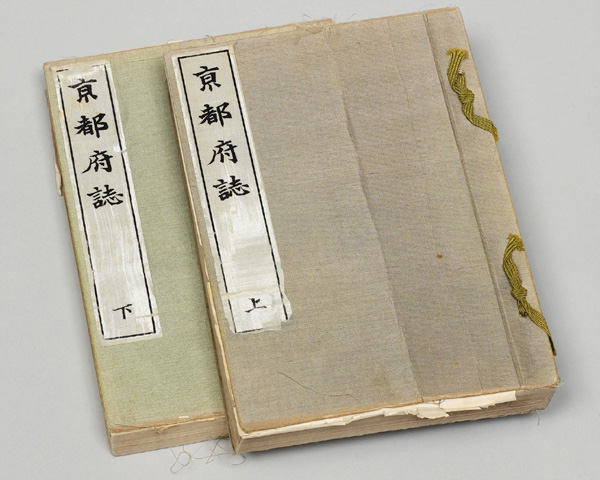 京都府誌
上
京都府誌
下